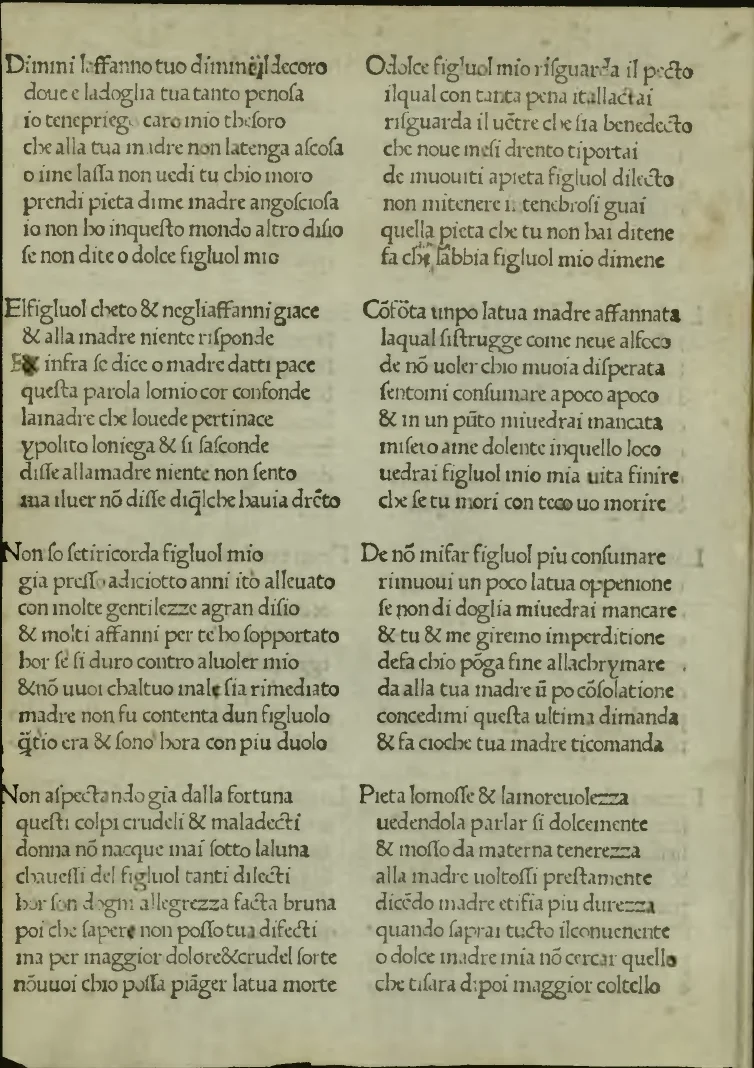 Dimmi laffanno tuo dimmi el decoro
doue e ladoglia tua tanto penoſa
io tenepriego caro mio theſoro
che alla tua madre non latenga aſcoſa
o ime laſſa non uedi tu chio moro
prendi pieta dime madre angoſcioſa
io non ho inqueſto mondo altro diſio
ſe non dite o dolce figluol mio

Elfigluol cheto & negliaffanni giace
& alla madre niente riſponde
& infra ſe dice o madre datti pace
queſta parola lomio cor confonde
lamadre che louede pertinace
ypolito loniega & ſi ſaſconde
diſſe allamadre niente non ſento
ma iluer nō diſſe diq̄lche hauia drēto

Non ſo ſetiricorda figluol mio
gia preſſo adiciotto anni ito alleuato
con molte gentilezze agran diſio
& molti affanni per te ho ſopportato
hor ſe ſi duro contro aluoler mio
&nō uuoi chaltuo male ſia rimediato
madre non fu contenta dun figluolo
q̄tio era & ſono hora con piu duolo

Non aſpectando gia dalla fortuna
queſti colpi crudeli & maladecti
donna nō nacque mai ſotto laluna
chaueſſi del figluol tanti dilecti
hor ſon dogni allegrezza facta bruna
poi che ſapere non poſſo tua difecti
ma per maggior dolore&crudel ſorte
nōuuoi chio poſſa piāger latua morte

Odolce figluol mio riſguarda il pecto
ilqual con tanta pena itallactai
riſguarda il uētre che ſia benedecto
che noue meſi drento tiportai
de muouiti apieta figluol dilecto
non mitenere in tenebroſi guai
quella pieta che tu non hai ditene
fa che ſabbia figluol mio dimene

Cōfōta unpo latua madre affannata
laqual ſiſtrugge come neue alfoco
de nō uoler chio muoia diſperata
ſentomi conſumare apoco apoco
& in un pūto miuedrai mancata
miſeto ame dolente inquello loco
uedrai figluol mio mia uita finire
che ſe tu mori con teco uo morire

De nō mifar figluol piu conſumare
rimuoui un poco latua oppenione
ſe non di doglia miuedrai mancare
& tu & me giremo imperditione
defa chio pōga fine allachrymare
da alla tua madre ū po cōſolatione
concedimi queſta ultima dimanda
& fa cioche tua madre ticomanda

Pieta lomoſſe & lamoreuolezza
uedendola parlar ſi dolcemente
& moſſo da materna tenerezza
alla madre uoltoſſi preſtamente
dicēdo madre etifia piu durezza
quando ſaprai tucto ilconuenente
o dolce madre mia nō cercar quello
che tiſara dipoi maggior coltello